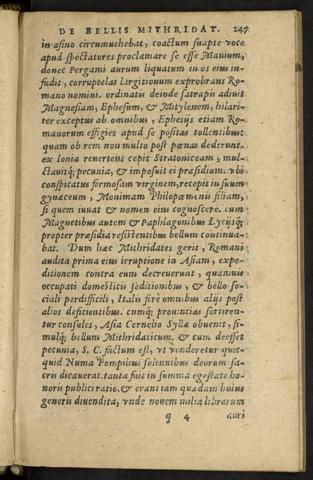 DE BELLIS MITHRIDAT. 247
in asino circumuehebat, coactum suapte voce
apud spectatores proclamare se esse Manium,
donec Pergami aurum liquatum in os eius in-
fudit, corruptelas largitionum exprobrans Ro-
mano nomini. ordinatis deinde satrapis adiuit
Magnesiam, Ephesum, & Mitylenem, hilari-
ter exceptus ab omnibus, Ephesijs etiam Ro-
manorum effigies apud se positas tollentibus:
quam ob rem non multo post pœnas dederunt.
ex Ionia reuertens cepit Stratoniceam; mul-
ctauitq; pecunia, & imposuit ei præsidium. vbi
conspicatus formosam virginem, recepit in suum
gynæceum, Monimam Philopœmenis filiam,
si quem iuuat & nomen eius cognoscere. cum
Magnetibus autem & Paphlagonibus Lycijsq;
propter præsidia resistentibus bellum continua-
bat. Dum hæc Mithridates gerit, Romani
audita prima eius irruptione in Asiam, expe-
ditionem contra eum decreuerunt, quamuis
occupati domesticis seditionibus, & bello so-
ciali perdifficili, Italis ferè omnibus alijs post
alios deficientibus. cumq; prouincias sortiren-
tur consules, Asia Cornelio Syllæ obuenit, si-
mulq; bellum Mithridaticum. & cum deesset
pecunia, S. C. factum est, vt venderetur quic-
quid Numa Pompilius solennibus deorum sa-
cris dicauerat. tanta fuit in summa egestate ho-
noris publici ratio. & erant tam quædam huius
generis diuendita, vnde nouem millia librarum
q 4 auri